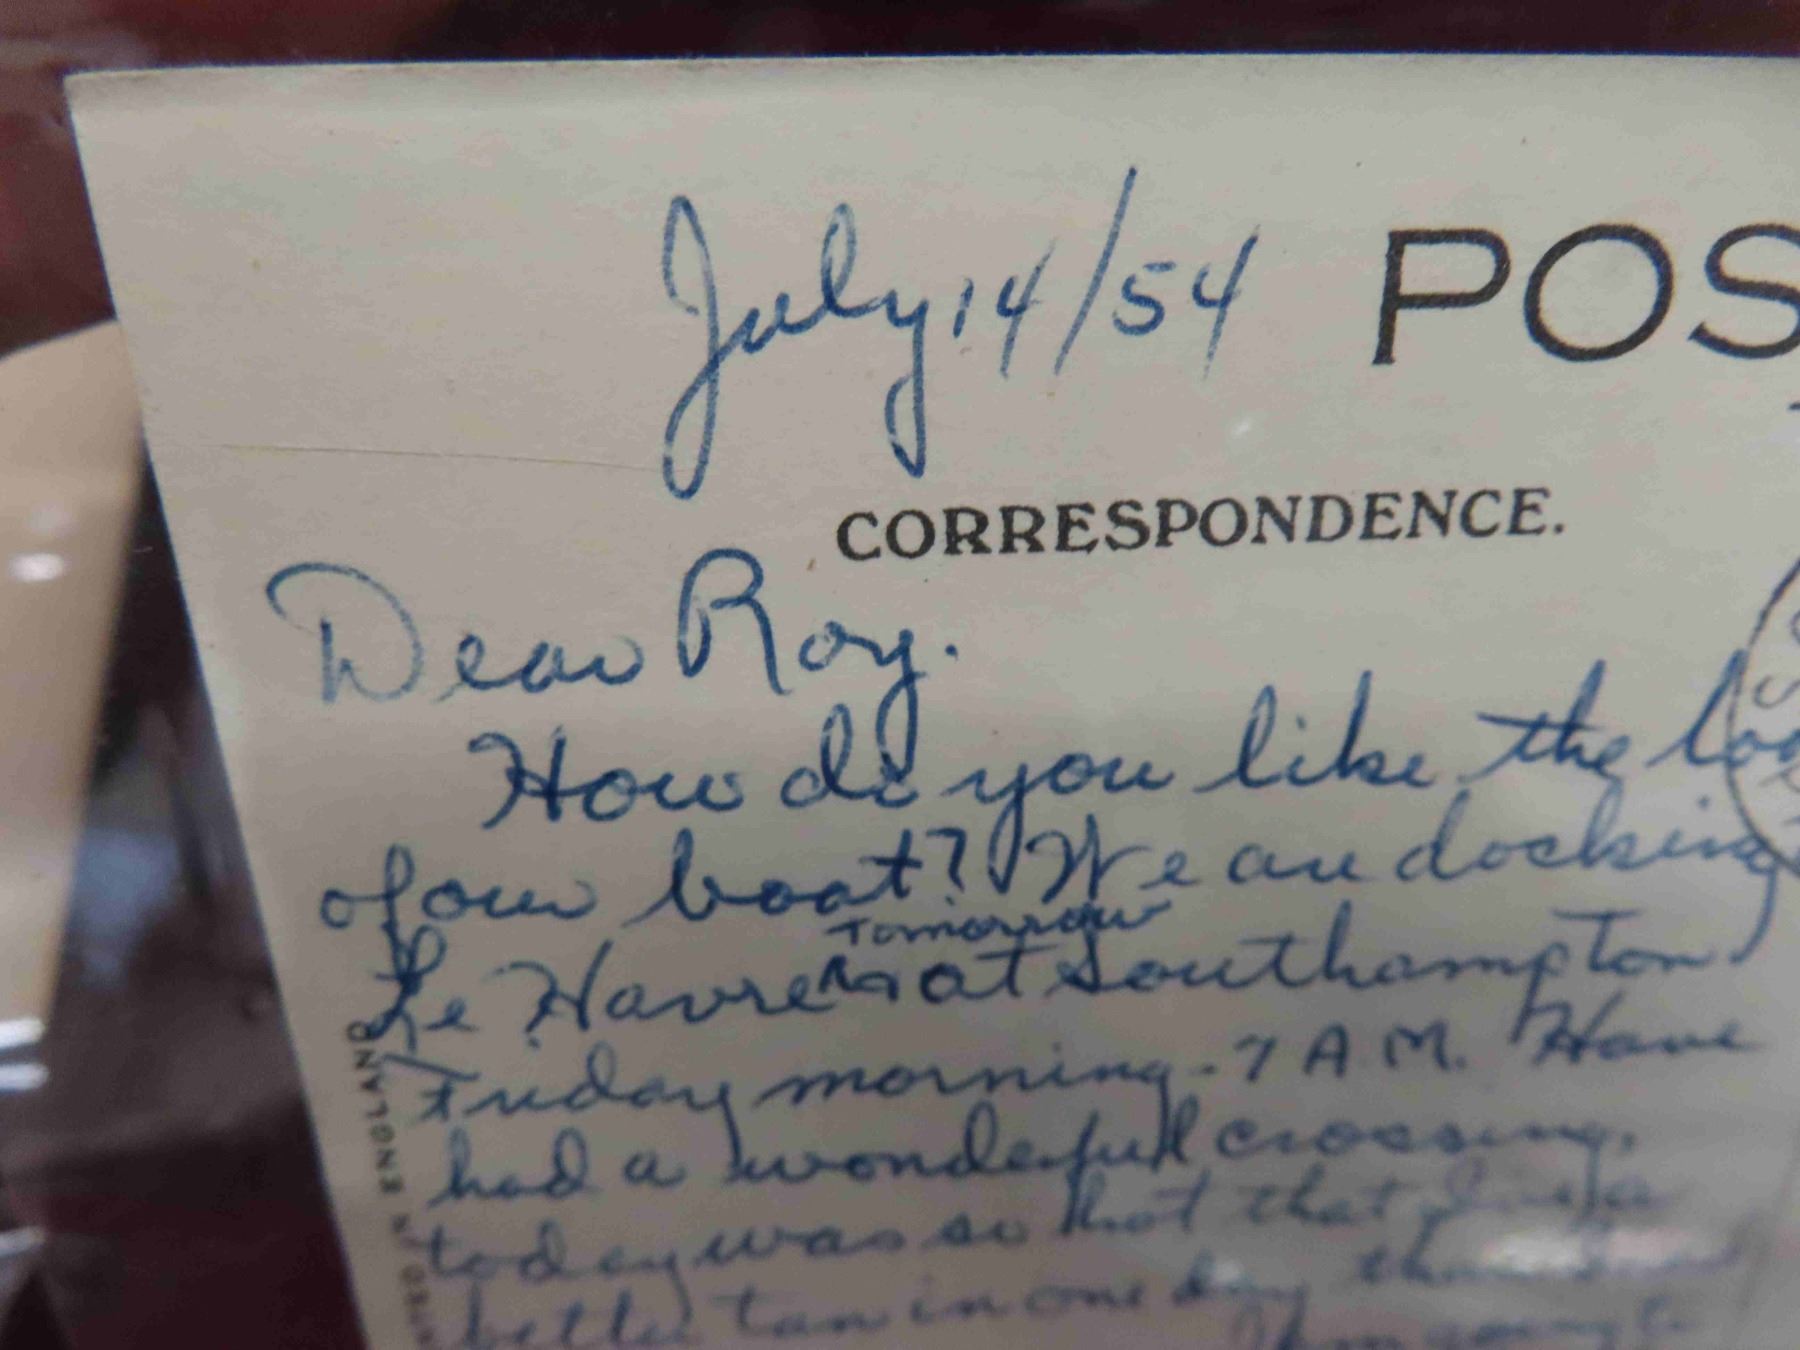 July 14/54
POS
CORRESPONDENCE.
Dear Roy.
How do you like the loo
of our boat? We are docking
Tomorrow
Le Havre at Southampton
Friday morning - 7 A.M. Have
had a wonderful crossing.
today was so hot that I
better tan in one day
PRINTED IN ENGLAND